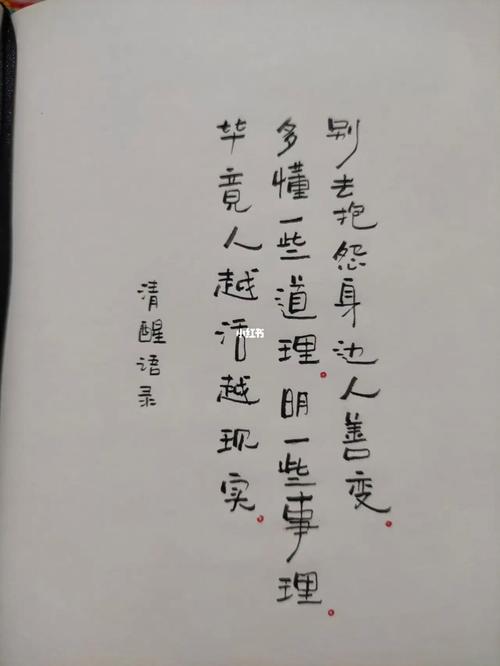 别去抱怨身边人善变。
多懂一些道理。明一些事理。
毕竟人越活越现实。
清醒语录
小红书